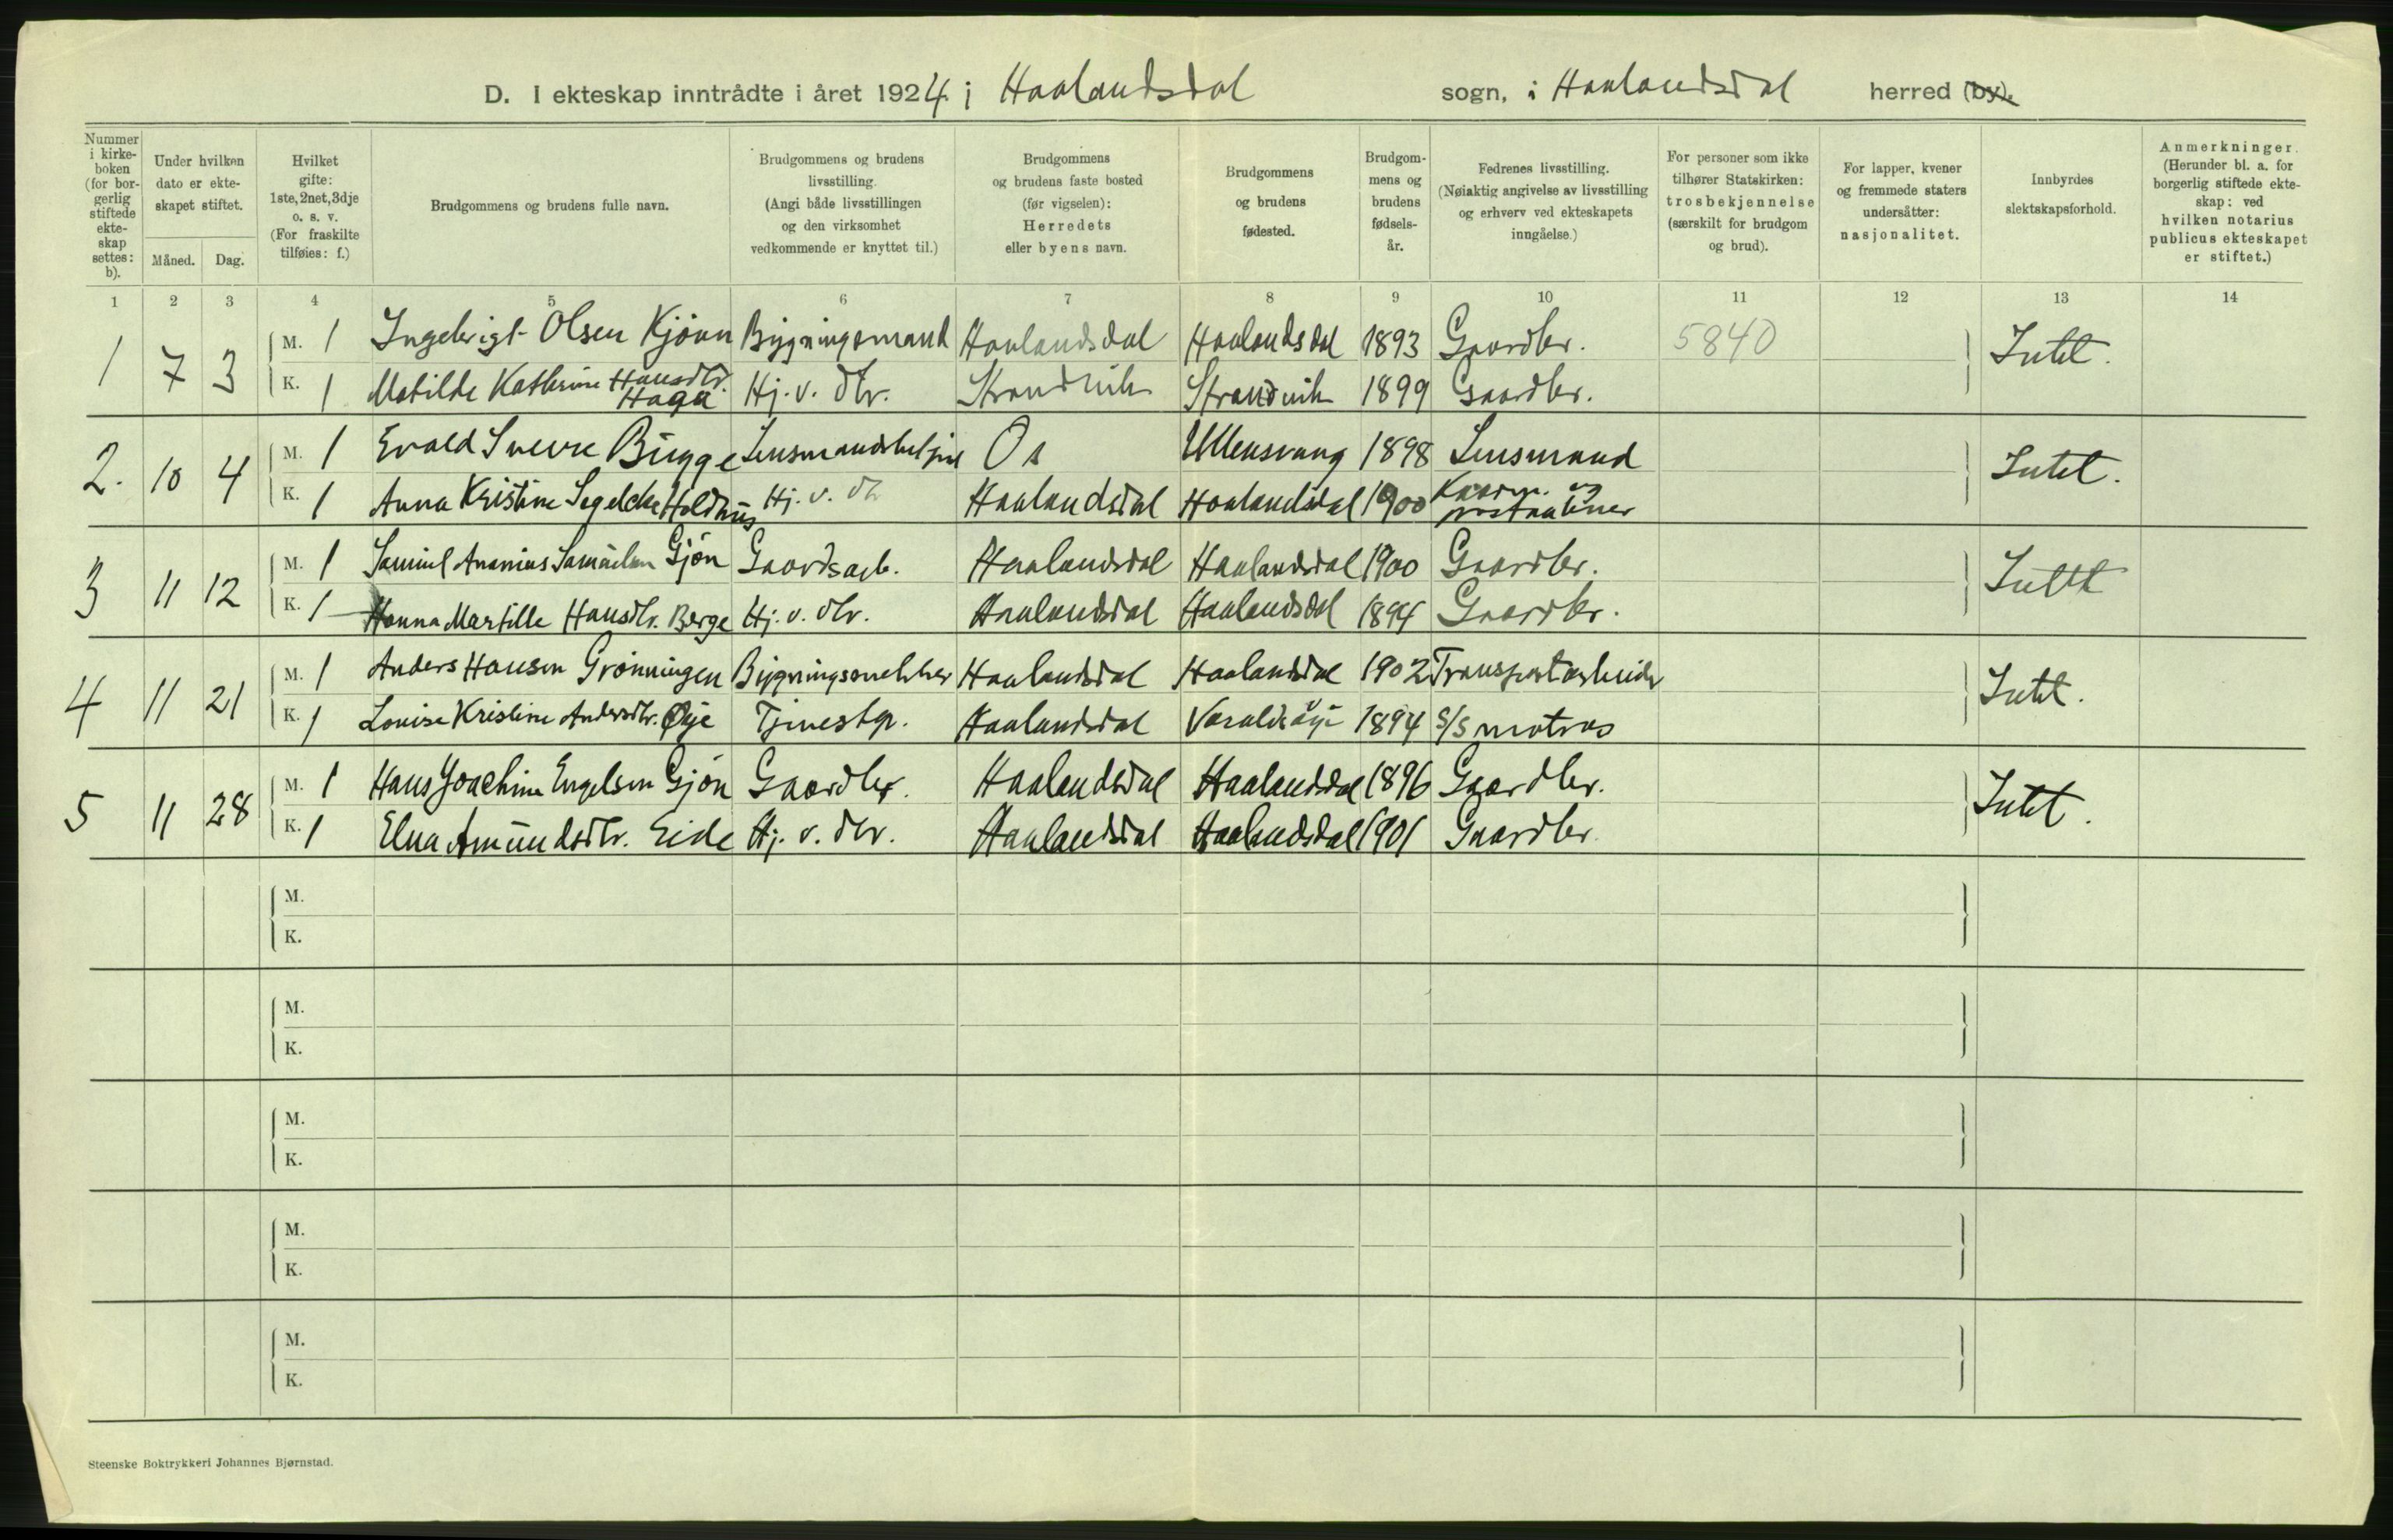 D. I ekteskap inntrådte i året 1924 i Haalandsdal sogn, i Haalandsdal herred (by).
Nummer i kirke-boken (for bor-gerlig stiftede ekte-skap settes: b).
Under hvilken dato er ekte-skapet stiftet.
Måned. Dag.
Hvilket gifte: 1ste, 2net, 3dje o. s. v. (For fraskilte tilføies: f.)
Brudgommens og brudens fulle navn.
Brudgommens og brudens livsstilling. (Angi både livsstillingen og den virksomhet vedkommende er knyttet til.)
Brudgommens og brudens faste bosted (før vigselen): Herredets eller byens navn.
Brudgommens og brudens fødested.
Brudgom-mens og brudens fødsels-år.
Fedrenes livsstilling. (Nøiaktig angivelse av livsstilling og erhverv ved ekteskapets inngåelse.)
For personer som ikke tilhører Statskirken: trosbekjennelse (særskilt for brudgom og brud).
For lapper, kvener og fremmede staters undersåtter: nasjonalitet.
Innbyrdes slektskapsforhold.
Anmerkninger. (Herunder bl. a. for borgerlig stiftede ekte-skap: ved hvilken notarius publicus ekteskapet er stiftet.)
1 2 3 4 5 6 7 8 9 10 11 12 13 14
1 7 3 M. 1 Ingebrigt Olsen Kjönn Bygningsmand Haalandsdal Haalandsdal 1893 Gaardbr. 5840 Intet.
K. 1 Matilde Kathrine Hansdtr. Haga Hj. v. dtr. Strandvik Strandvik 1899 Gaardbr.
2. 10 4 M. 1 Evald Sverre Bugge Lensmandsbetjent Os Ullensvang 1898 Lensmand Intet.
K. 1 Anna Kristine Segelcke Holdhus Hj. v. dtr Haalandsdal Haalandsdal 1900 og
3 11 12 M. 1 Samuel Ananias Samuelsen Gjön Gaardsarb. Haalandsdal Haalandsdal 1900 Gaardbr. Intet
K. 1 Hanna Martille Hansdtr. Berge Hj. v. dtr. Haalandsdal Haalandsdal 1894 Gaardbr.
4 11 21 M. 1 Anders Hansen Grönningen Bygningssnekker Haalandsdal Haalandsdal 1902 Transportarbeider Intet.
K. 1 Louise Kristine Andersdtr. Øye Tjenestp. Haalandsdal Varaldsöy 1894 S/S matros
5 11 28 M. 1 Hans Joachim Engelsen Gjön Gaardbr. Haalandsdal Haalandsdal 1896 Gaardbr. Intet.
K. 1 Elna Amundsdtr. Eide Hj. v. dtr. Haalandsdal Haalandsdal 1901 Gaardbr.
M.
K.
M.
K.
M.
K.
M.
K.
M.
K.
Steenske Boktrykkeri Johannes Bjørnstad.